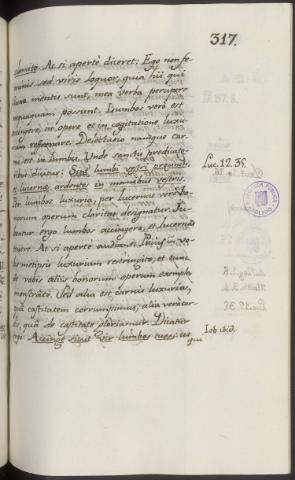 317.
domito. Ac si aperte diceret: Ego non fe-
minis sed viris loquor, quia hi qui
fluxa mentis sunt, mea verba percipere
nequaquam possunt. Lumbos vero est
accingere, in opere et in cogitatione luxu-
riam refrenare. Delectatio namque car-
nis est in lumbis. Unde sanctis praedicato-
ribus dicitur: Sint lumbi vestri praecincti, Luc. 12. 35.
et lucernae ardentes in manibus vestris.
In lumbis luxuria, per lucernas vero bo-
norum operum claritas designatur. Ju-
bentur ergo lumbos accingere, et lucernas
tenere. Ac si aperte audiant: Prius in vo-
bismetipsis luxuriam restringite, et tunc
de vobis aliis bonorum operum exempla
monstrate. Sed alia est carnis luxuries,
qua castitatem corrumpimus; alia vero cor-
dis, qua de castitate gloriamur. Dicitur
ergo: Accinge sicut vir lumbos tuos; ut Iob ibid.
qui